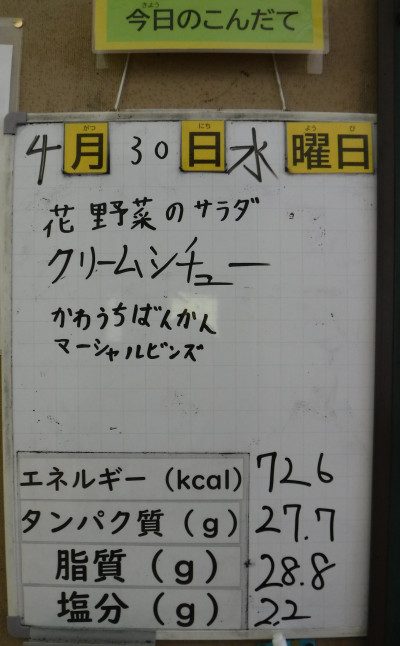 今日のこんだて
4月30日水曜日
花野菜のサラダ
クリームシチュー
かわうちばんかん
マーシャルビンズ
エネルギー(kcal) 726
タンパク質(g) 27.7
脂質(g) 28.8
塩分(g) 2.2